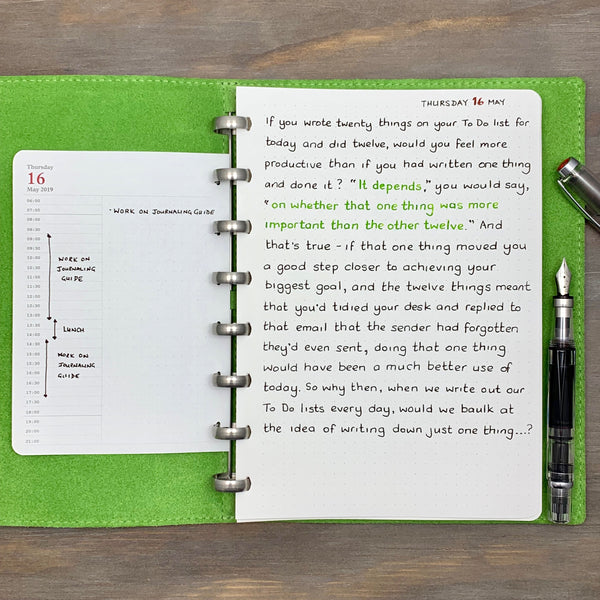 Thursday
16
May 2019
06:00
06:30
07:00
07:30
08:00
08:30
09:00
09:30
10:00
10:30
11:00
11:30
12:00
12:30
13:00
13:30
14:00
14:30
15:00
15:30
16:00
16:30
17:00
17:30
18:00
18:30
19:00
19:30
20:00
21:00
WORK ON
JOURNALING
GUIDE
LUNCH
WORK ON
JOURNALING
GUIDE
· WORK ON JOURNALING GUIDE
THURSDAY 16 MAY
If you wrote twenty things on your To Do list for
today and did twelve, would you feel more
productive than if you had written one thing
and done it? "It depends," you would say,
"on whether that one thing was more
important than the other twelve." And
that's true - if that one thing moved you
a good step closer to achieving your
biggest goal, and the twelve things meant
that you'd tidied your desk and replied to
that email that the sender had forgotten
they'd even sent, doing that one thing
would have been a much better use of
today. So why then, when we write out our
To Do lists every day, would we baulk at
the idea of writing down just one thing...?